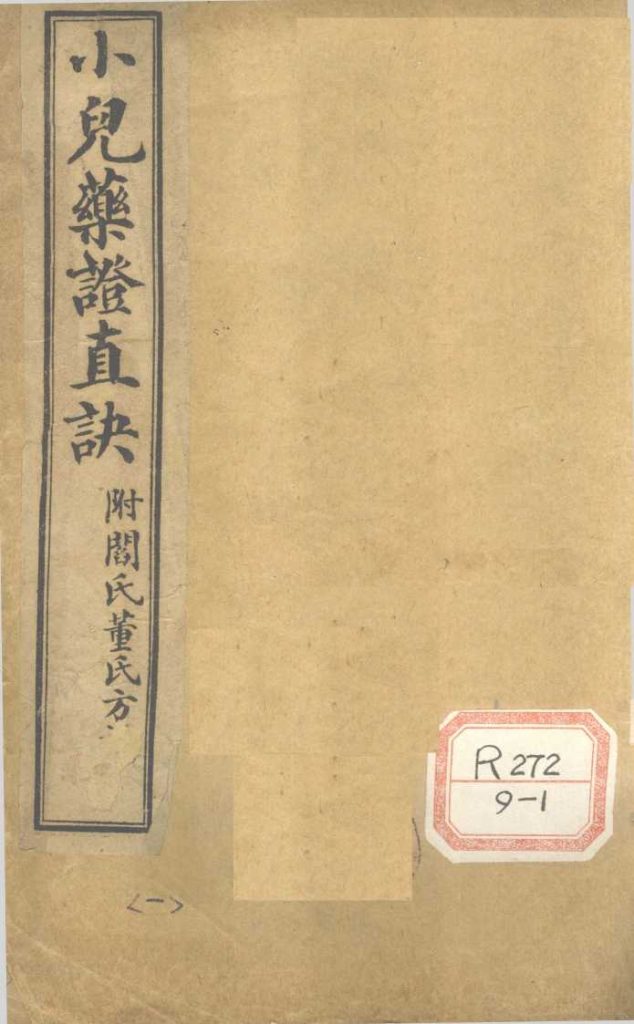 小兒藥證直訣
附閻氏董氏方
R272
9-1
<一>